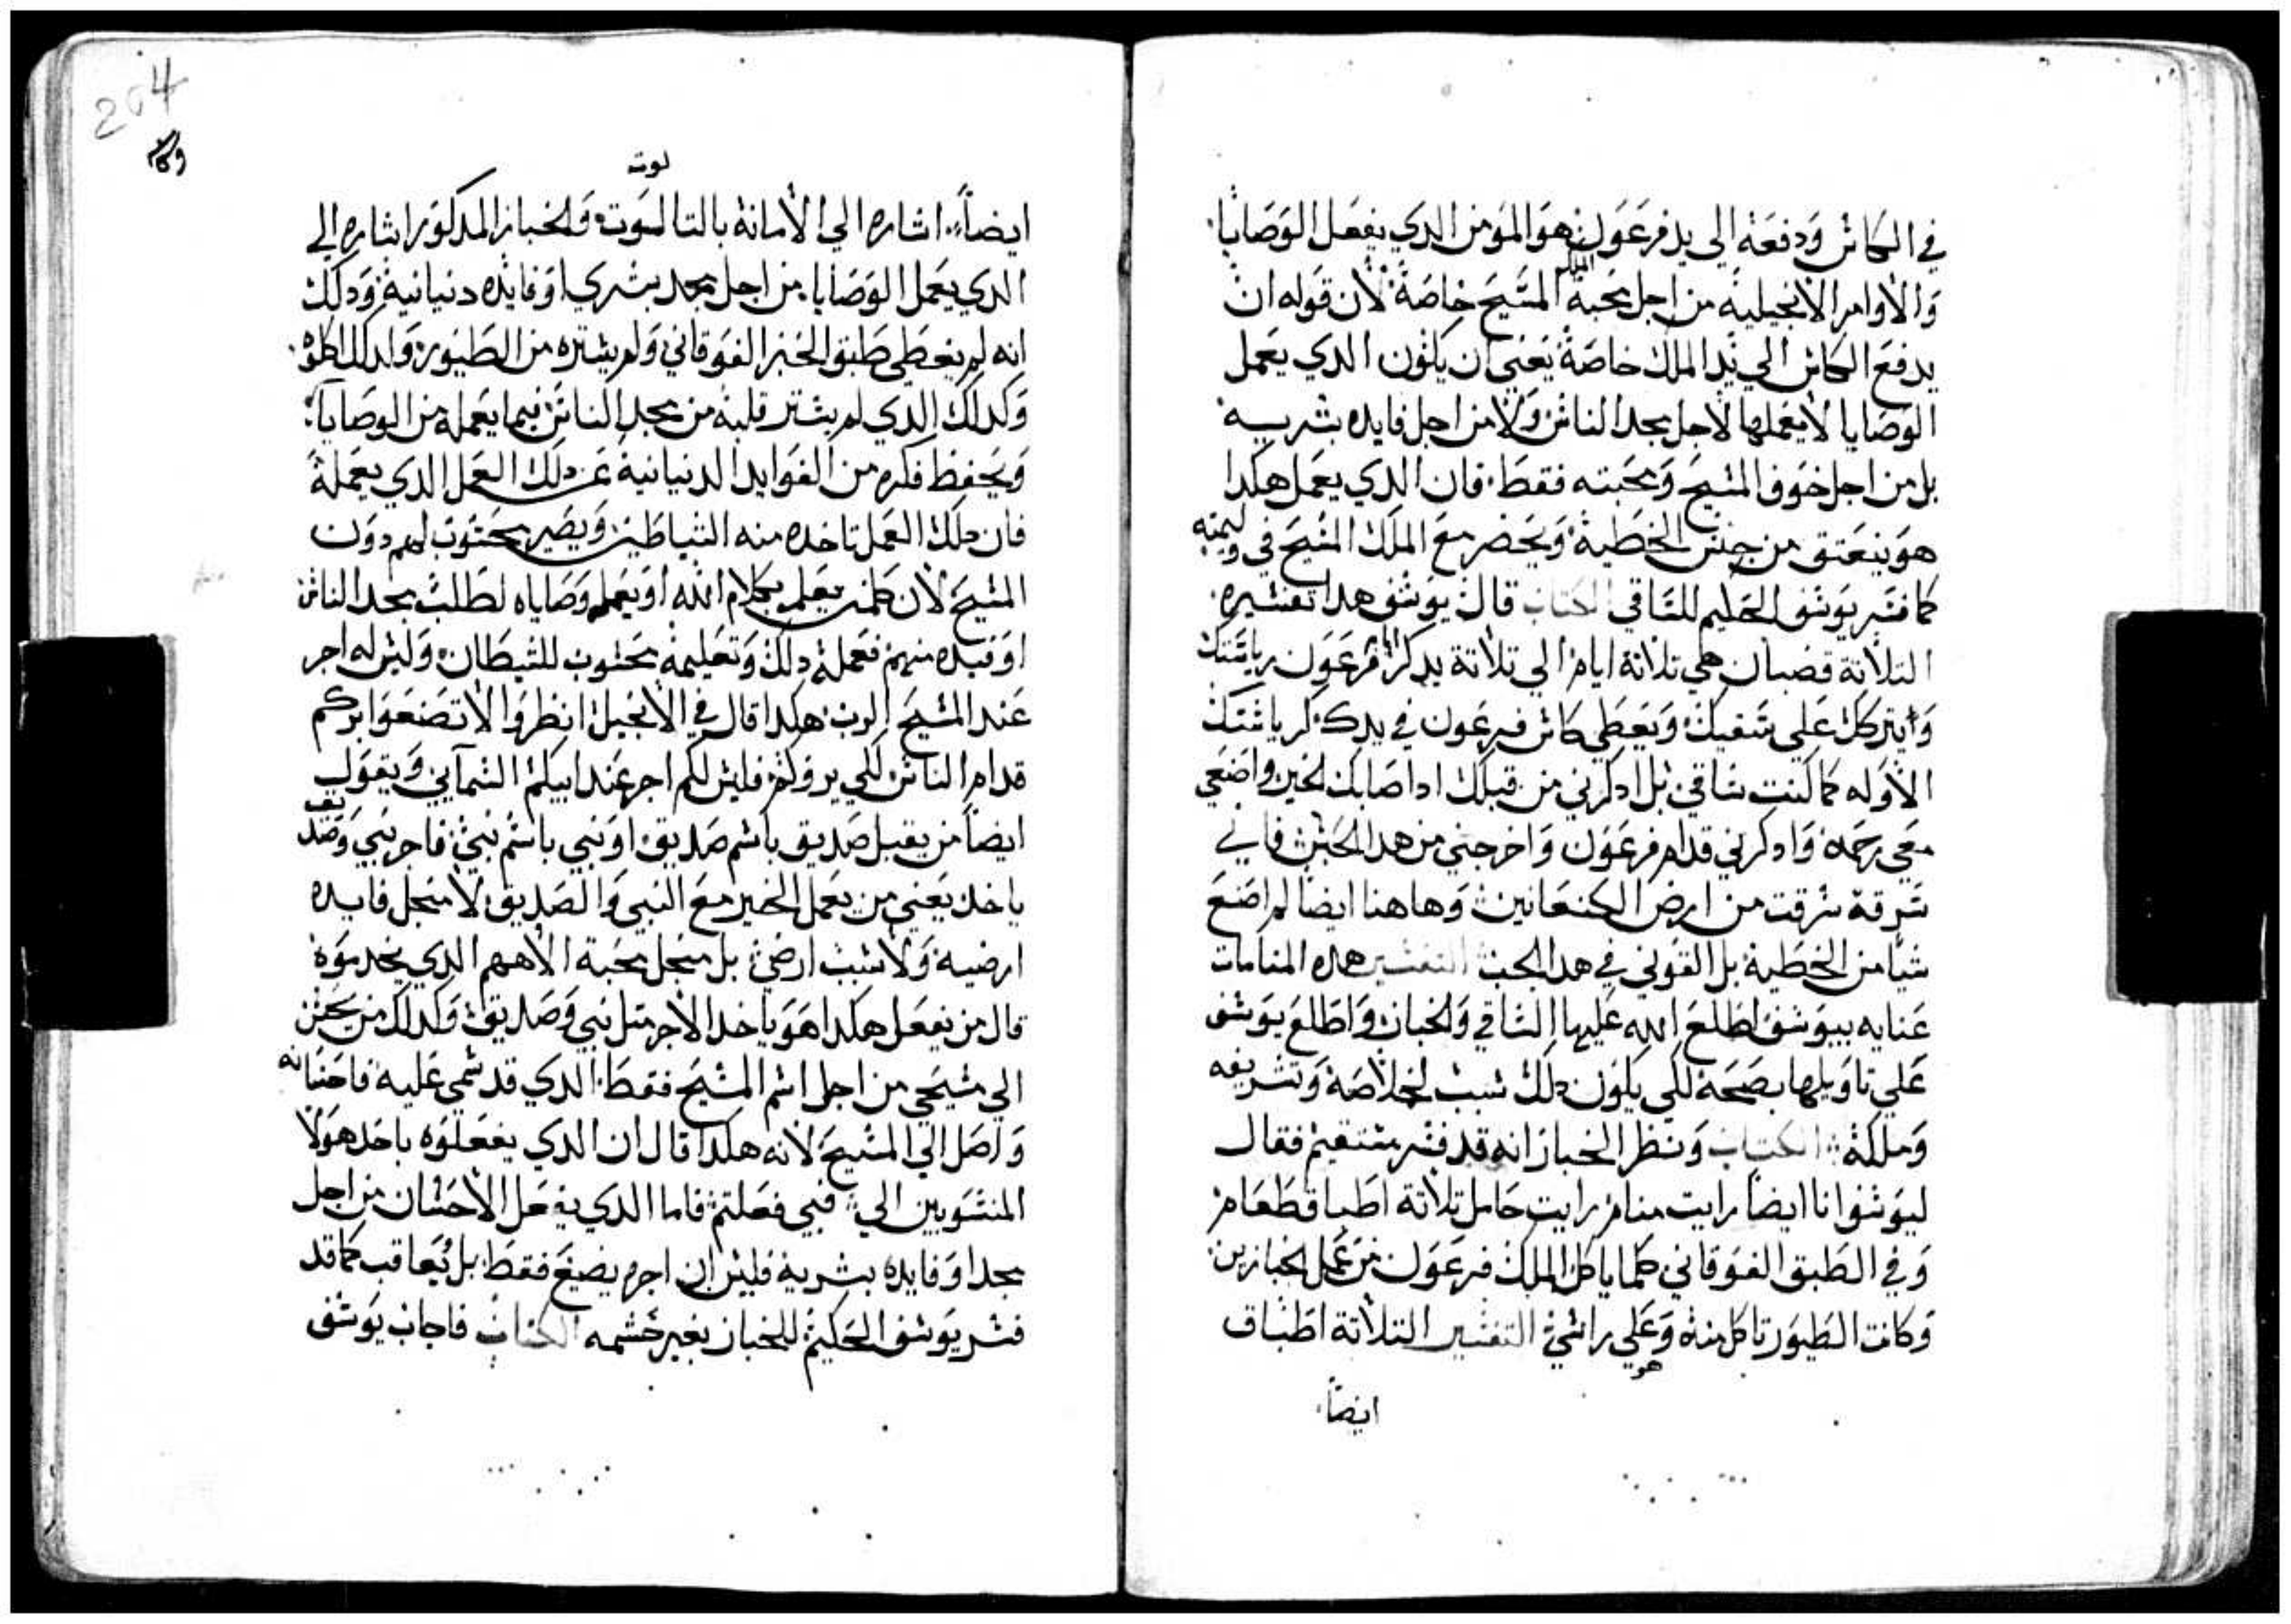 في الكاس ودفعه الى يد فرعون فهو المومن الدي يفعل الوصايا
والاوامر الانجيلية من اجل محبة الملك المسيح خاصة لان قوله ان
يدفع الكاس الي يد الملك خاصة يعني ان يكون الدي يعمل
الوصايا لا يعملها لاجل مجد الناس ولا من اجل فايده بشريه
بل من اجل خوف المسيح ومحبته فقط. فان الدي يعمل هكدا
هو ينعتق من حبس الخطية ويحضر مع الملك المسيح في وليمته
كما فسر يوسف الحليم للساقي الكتاب قال يوسف هدا تفسيره.
التلاتة قضبان هي تلاتة ايام الي تلاتة يدكر فرعون رياستك
وايتركك علي سقيك وتعطي كاس فرعون في يده كرياستك
الاوله كما كنت ساقي بل ادكرني من قبلك ادا صابك لخير واضعي
معي رحمة وادكرني قدام فرعون واخرجني من هدا الحبس فاني
سرقة سرقت من ارض الكنعانيين وهاهنا ايضا لم اصنع
شيا من الخطية بل القوني في هدا الجب التفسير هده المنامات
عنايه بيوسف اطلع الله عليها الساقي ولخباز واطلع يوسف
علي تاويلها بصحة لكي يكون دلك سبب لخلاصه وتشريفه
وملكه الكتاب ونظر الخباز انه قد فسر مستقيم فقال
ليوسف وانا ايضا رايت منام رايت حامل تلاتة اطباق طعام
وفي الطبق الفوقاني كلما ياكل الملك فرعون من عمل لخبازين
وكانت الطيور تاكل منه وعلي راسي التفسير التلاتة اطباق
هو
ايضاً
204
لوت
ايضاً اشاره الي الامانة بالتالوت ولخباز المدكور اشاره الي
الدي يعمل الوصايا من اجل مجد بشري او فايده دنيانية ودلك
انه لم يغطي طبق الخبز الفوقاني ولم يستره من الطيور ولدلك اكلوه
وكدلك الدي لم يستر قلبه من مجد الناس فيما يعمله من الوصايا
ويحفظ فكره من الفوايد الدنيانية عن دلك العمل الدي يعمله
فان دلك العمل تاخده منه الشياطين ويصير محسوب لهم دون
المسيح لان كلمن يعلم بكلام الله او يعمل وصاياه لطلب مجد الناس
او فيده منهم فعمله دلك وتعليمه محسوب للشيطان وليس له اجر
عند المسيح الرب هكدا قال في الانجيل انظروا لا تصنعوا بركم
قدام الناس لكي يروكم فليس لكم اجر عند ابيكم السمآيي ويقول
ايضاً من يقبل صديق باسم صديق او نبي باسم نبي فاجر نبي وصديق
ياخد يعني من يعمل الخير مع النبي والصديق لا منجل فايده
ارضية ولا سبب ارضي بل منجل محبة الاههم الدي يخدموه
قال من يفعل هكدا هو ياخد الاجر متل نبي وصديق وكدلك من يحسن
الي مسيحي من اجل اسم المسيح فقط الدي قد سمي عليه فاحسانه
واصل الي المسيح لانه هكدا قال ان الدي يفعلوه باحد هولا
المنسوبين الي فبي فعلتم فاما الدي يفعل الاحسان من اجل
مجد او فايدة بشرية فليس ان اجره يضيع فقط بل يعاقب كما قد
فسر يوسف الحكيم للخباز بغير حشمه الكتاب فاجاب يوسف